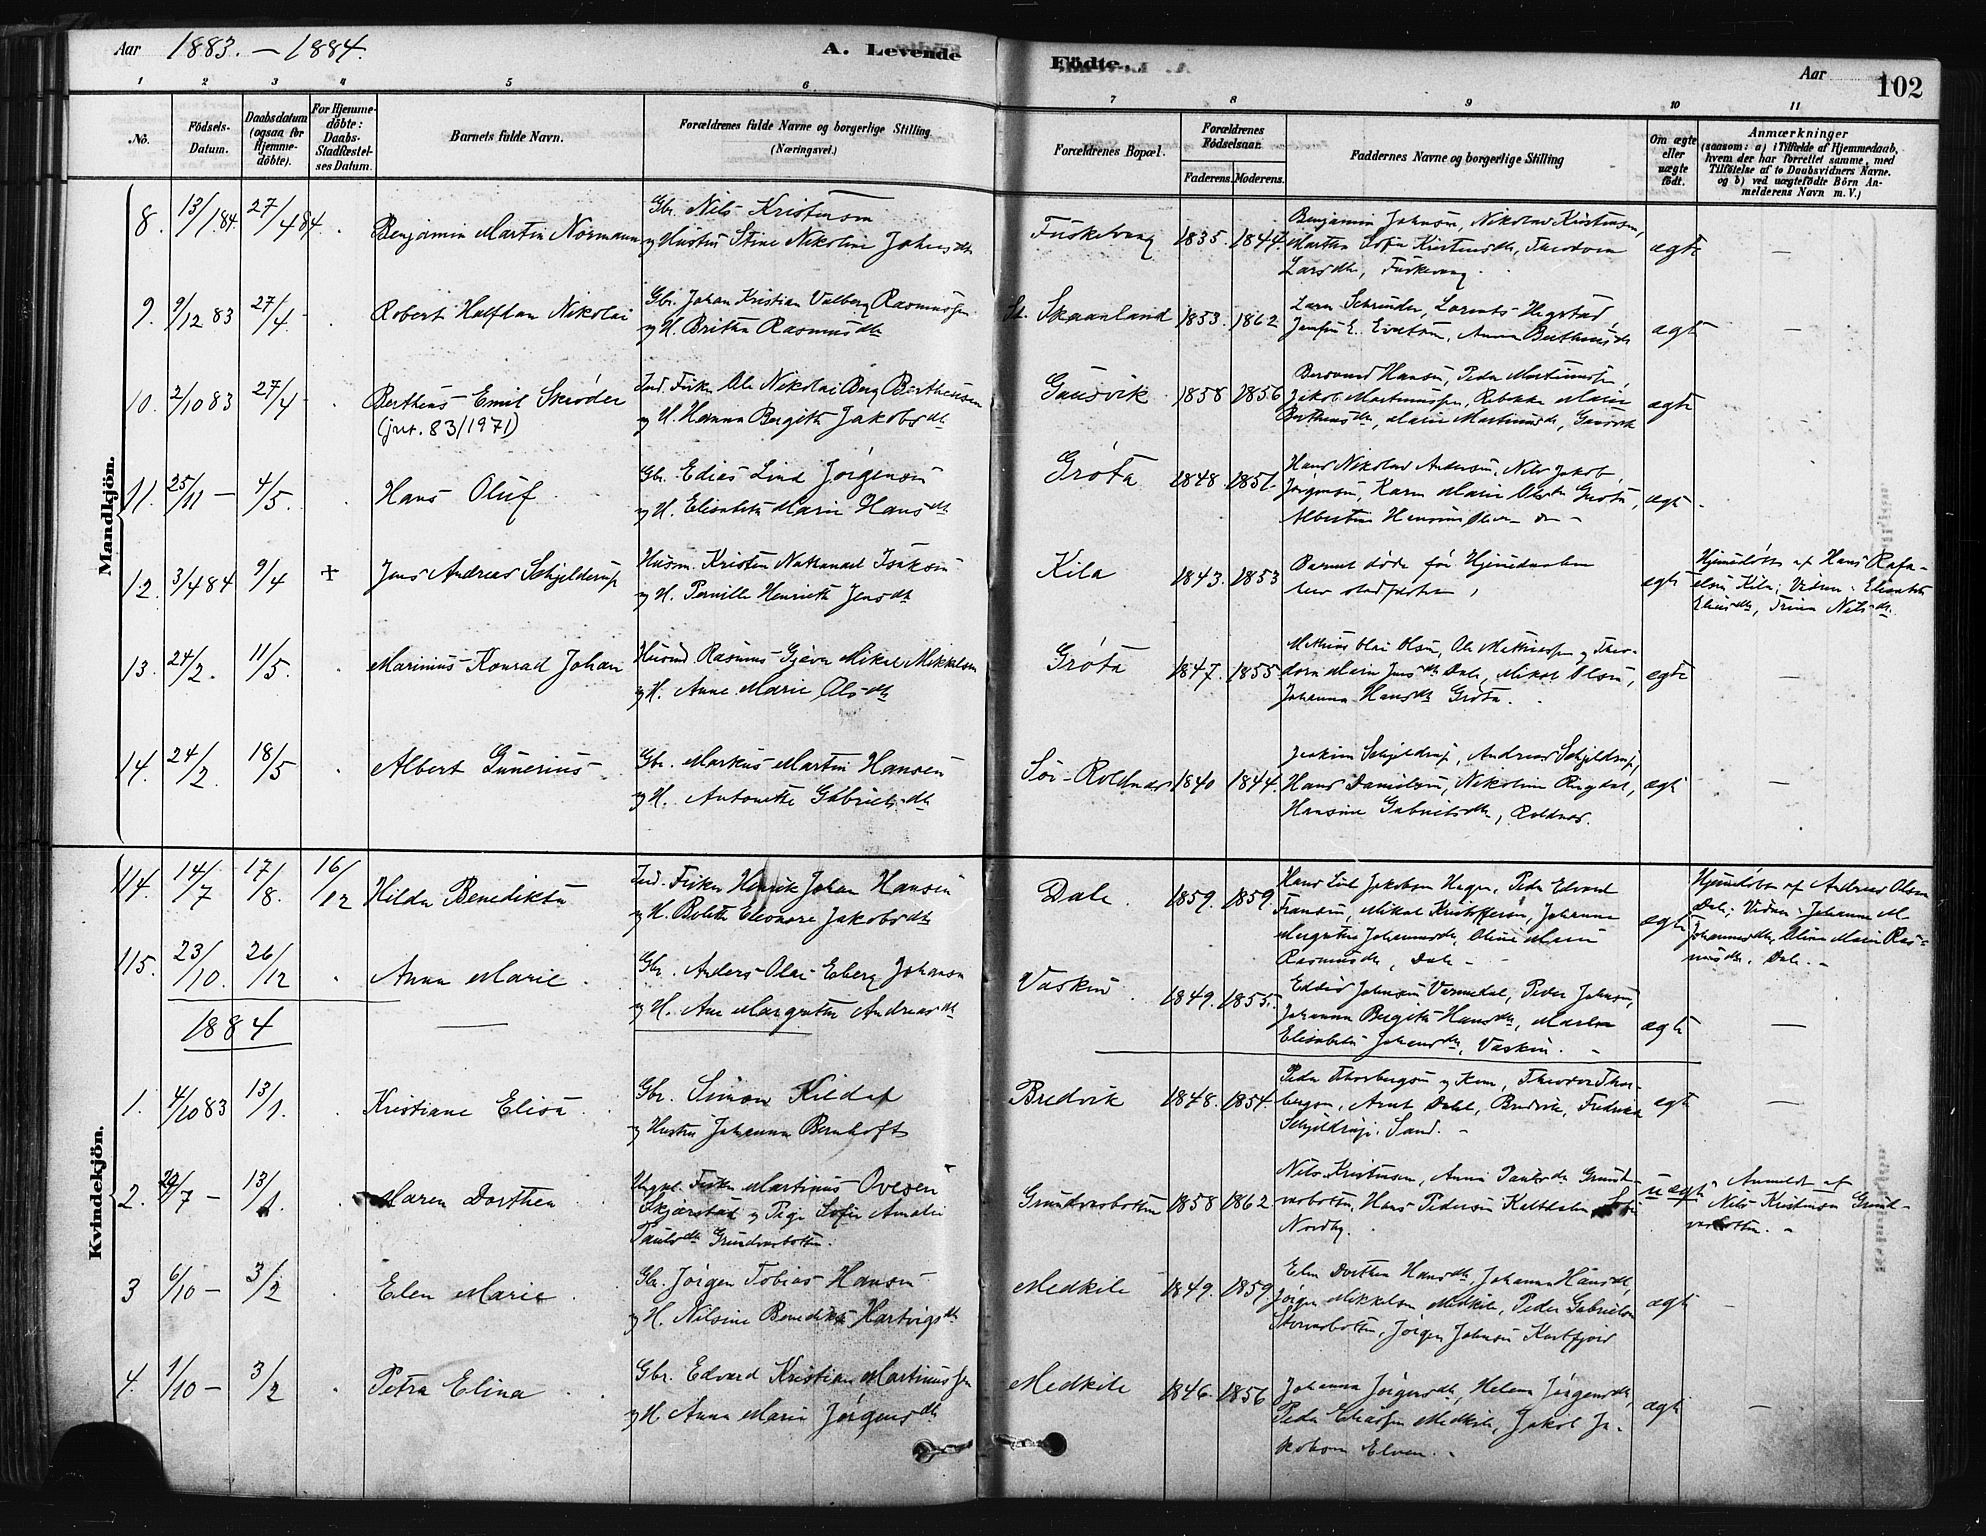 Aar 1883. – 1884.
A. Levende Födte.
Aar
102
1 2 3 4 5 6 7 8 9 10 11
No.
Födsels-Datum.
Daabsdatum (ogsaa for Hjemme-döbte).
For Hjemme-döbte: Daabs-Stadfæstel-ses Datum.
Barnets fulde Navn.
Forældrenes fulde Navne og borgerlige Stilling
(Næringsvei.)
Forældrenes Bopæl.
Forældrenes Födselsaar.
Faderens. Moderens.
Faddernes Navne og borgerlige Stilling
Om ægte eller uægte födt.
Anmærkninger
(saasom: a) i Tilfælde af Hjemmedaab, hvem der har forrettet samme, med Tilföielse af to Daabsvidners Navne. og b) ved uægtefödte Börn An-melderens Navn m. V.)
Mandkjön.
8. 13/1 84. 27/4 84. Benjamin Martin Normann
Gbr. Nils Kristensen
og Hustru Stine Nikoline Johnsdtr
1835. 1844.
Benjamin Johnsen, Nikolai Kristensen,
Martha Sofie Kristensdtr,
Larsdtr,
ægte –
9. 9/12 83 27/4. Robert Halfdan Nikolai
Gbr. Johan Kristian Valberg Rasmussen
og H. Britha Rasmusdtr
St. Skaanland 1853. 1862
ægte –
10. 2/10 83 27/4 Bertheus Emil Skrøder
(jnr. 83/1971)
Ind. Fisker Ole Nikolai Berg Bertheussen
og H. Hanna Bergitte Jakobsdtr
Gausvik 1858 1856
Hansen, Peder Martinussen,
Jakob Martinussen, Rebekka Marie
Bertheusdtr, Marie Martinusdtr, Gausvik
ægte
11. 25/11 – 4/5. Hans Oluf
Gbr. Edias Lind Jørgensen
og H. Elisabeth Marie Hansdtr
Grøta 1848 1851.
Hans Nikolai Andersen, Nils Jakob
Jørgensen, Karen Marie Olsdtr Grøta,
ægte.
12. 3/4 84 9/4 + Jens Andreas Schjelderup
Husm. Kristen Nathanael Isaksen
og H. Pernille Henriette Jensdtr
Kila 1843. 1853
Barnet døde før Hjemmedaaben
blev stadfæstet,
ægte
Hjemmedøbt af Hans Rafa-
elsen Kila; Vidner: Elisabeth
Eliasdtr, Trine Nilsdtr.
13. 24/2. 11/5. Marinius Konrad Johan
Rasmus Gjeva Mikal Mikkelsen
og H. Anne Marie Olsdtr
Grøta 1847. 1855.
Mathias Olai Olsen, Ole Mathiassen og Theo-
dora Marie Jensdtr Dale, Mikal Olsen,
Johanna Hansdtr Grøta.
ægte –
14. 24/2. 18/5 Albert Gunerius
Gbr. Markus Martin Hansen
og H. Antonette Gabrielsdtr
Sør-Roldnæs 1840 1844.
Joakim Schjeldrup, Andreas Schjeldrup,
Hans Danielsen, Nikoline Ringdal,
Hansine Gabrielsdtr, Roldnæs.
ægte –
Kvindekjön.
114. 14/7 17/8. 16/12 Hilda Benedikta
Ind. Fisker Henrik Johan Hansen
og H. Boletta Eleonore Jakobsdtr
Dale. 1859. 1859.
Hans Jakobsen, Peder Edvard
Fransen, Mikal Kristoffersen, Johanna
Margrethe Johannesdtr, Oline Marie
Rasmusdtr, Dale –
ægte
Hjemmedøbt af Andreas Olsen
Dale; Vidner: Johanna M.
Johannesdtr, Oline Marie Ras-
musdtr, Dale. –
115. 23/10. 26/12 Anna Marie.
Gbr. Anders Olai Eberg Johansen
og H. Ane Margrethe Andreasdtr
Vaskin 1849. 1855.
Johnsen Varmedal, Peder Johnsen,
Johanna Bergitte Hansdtr,
Elisabeth Johansdtr, Vaskin. –
ægte –
1884
1. 4/10 83 13/1. Kristiane Elisa
Gbr. Simon Kildal
og Hustru Johanna Bernhoft
Bredvik 1848. 1854.
Peder Thorbergsen og Kone, Theodor Thor-
bergsen, Arnt Dahl, Bredvik, Fredrika
Schjeldrup, Sand. –
ægte –
2. 29/7 – 13/1. Maren Dorthea
Ungkl. Fisker Martinus Ovesen
Skjærstad og Pige Sofie Amalie
Paulsdtr Grundvasbotten.
Grundvasbotten 1858 1862
Nils Kristensen, Anna Paulsdtr Grund-
vasbotten, Hans Pedersen
Nordby.
uægte
Anmeldt af
Nils Kristensen Grund-
vasbotten. –
3 6/10 – 3/2 Elen Marie
Gbr. Jørgen Tobias Hansen
og H. Nilsine Benedikta Hartvigsdtr
Medkile 1849. 1859.
Elen Dorthea Hansdtr, Johanna Hansdtr,
Jørgen Mikkelsen Medkile, Peder Gabrielsen
Storvasbotten, Jørgen Johnsen
ægte –
4. 1/10 – 3/2 Petra Elina
Gbr. Edvard Kristian Martinussen
og H. Anna Marie Jørgensdtr
Medkile 1846. 1856
Johanna Jørgensdtr, Helena Jørgensdtr,
Peder Eliassen Medkile, Jakob Ja-
kobsen Elven. –
ægte –